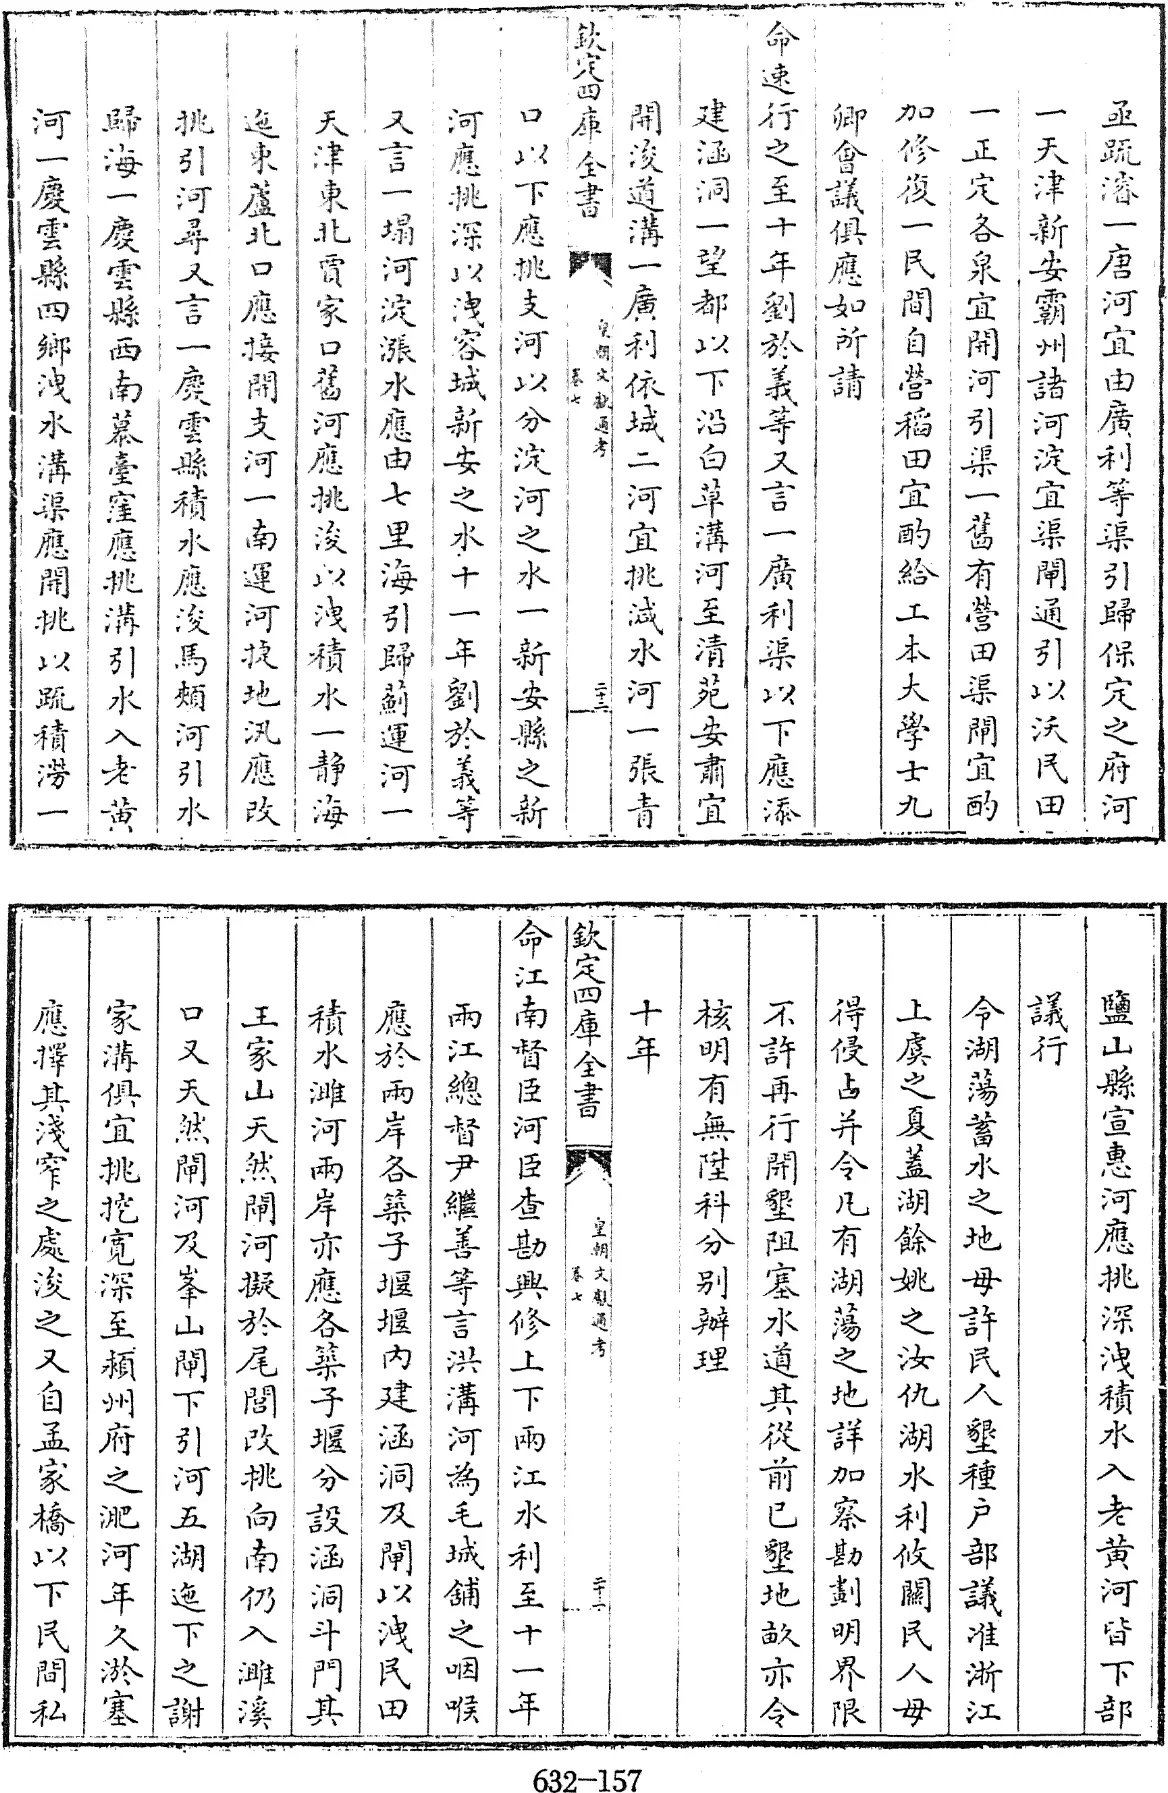 亟疏濬一唐河宜由廣利等渠引歸保定之府河
一天津新安霸州諸河淀宜渠閘通引以沃民田
一正定各泉宜開河引渠一舊有營田渠閘宜酌
加修復一民間自營稻田宜酌給工本大學士九
卿會議俱應如所請
命速行之至十年劉於義等又言一廣利渠以下應添
建涵洞一望都以下沿白草溝河至清苑安肅宜
開浚道溝一廣利依城二河宜挑減水河一張青
欽定四庫全書
皇朝文獻通考
卷七
二十三
口以下應挑支河以分淀河之水一新安縣之新
河應挑深以洩容城新安之水十一年劉於義等
又言一塌河淀漲水應由七里海引歸薊運河一
天津東北賈家口舊河應挑浚以洩積水一靜海
迤東蘆北口應接開支河一南運河捷地汛應改
挑引河尋又言一慶雲縣積水應浚馬頰河引水
歸海一慶雲縣西南慕臺窪應挑溝引水入老黃
河一慶雲縣四鄉洩水溝渠應開挑以疏積澇一
鹽山縣宣惠河應挑深洩積水入老黃河皆下部
議行
令湖蕩蓄水之地毋許民人墾種户部議准浙江
上虞之夏蓋湖餘姚之汝仇湖水利攸關民人毋
得侵占并令凡有湖蕩之地詳加察勘劃明界限
不許再行開墾阻塞水道其從前已墾地畝亦令
核明有無陞科分别辦理
十年
欽定四庫全書
皇朝文獻通考
卷七
命江南督臣河臣查勘興修上下兩江水利至十一年
兩江總督尹繼善等言洪溝河為毛城舖之咽喉
應於兩岸各築子堰堰内建涵洞及閘以洩民田
積水濉河兩岸亦應各築子堰分設涵洞斗門其
王家山天然閘河擬於尾閭改挑向南仍入濉溪
口又天然閘河及峯山閘下引河五湖迤下之謝
家溝俱宜挑挖寬深至潁州府之淝河年久淤塞
應擇其淺窄之處浚之又自孟家橋以下民間私
632-157